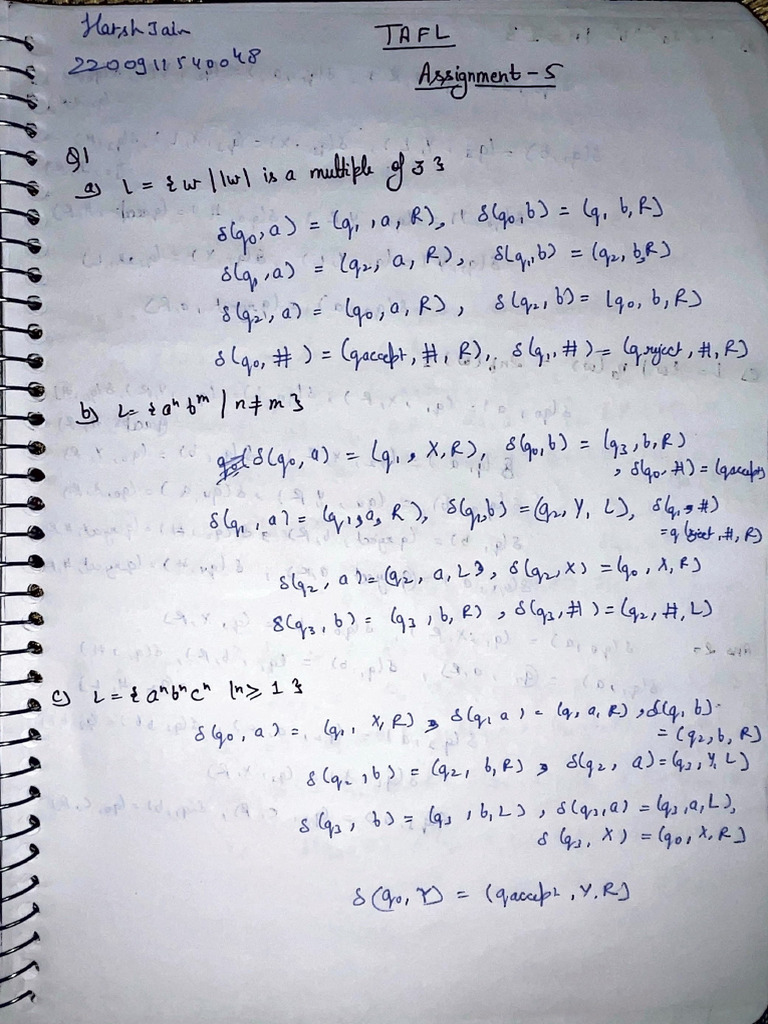 Harsh Jain
TAFL
220091540048
Assignment - 5
Q1
a) L = { w | |w| is a multiple of 3 }
δ(q0, a) = (q1, a, R), δ(q0, b) = (q, b, R)
δ(q1, a) = (q2, a, R), δ(q1, b) = (q2, b, R)
δ(q2, a) = (q0, a, R), δ(q2, b) = (q0, b, R)
δ(q0, #) = (qaccept, #, R), δ(q1, #) = (qreject, #, R)
b) L = { aⁿ bᵐ | n ≠ m }
δ(q0, a) = (q1, X, R), δ(q0, b) = (q3, b, R)
, δ(q0, #) = (qaccept)
δ(q1, a) = (q1, a, R), δ(q1, b) = (q2, Y, L), δ(q1, #)
= q(reject, #, R)
δ(q2, a) = (q2, a, L), δ(q2, X) = (q0, X, R)
δ(q3, b) = (q3, b, R), δ(q3, #) = (q2, #, L)
c) L = { aⁿ bⁿ cⁿ | n ≥ 1 }
δ(q0, a) = (q1, X, R), δ(q, a) = (q, a, R), δ(q, b)
= (q2, b, R)
δ(q2, b) = (q2, b, R), δ(q2, a) = (q3, Y, L)
δ(q3, b) = (q3, b, L), δ(q3, a) = (q3, a, L),
δ(q3, X) = (q0, X, R)
δ(q0, Y) = (qaccept, Y, R)